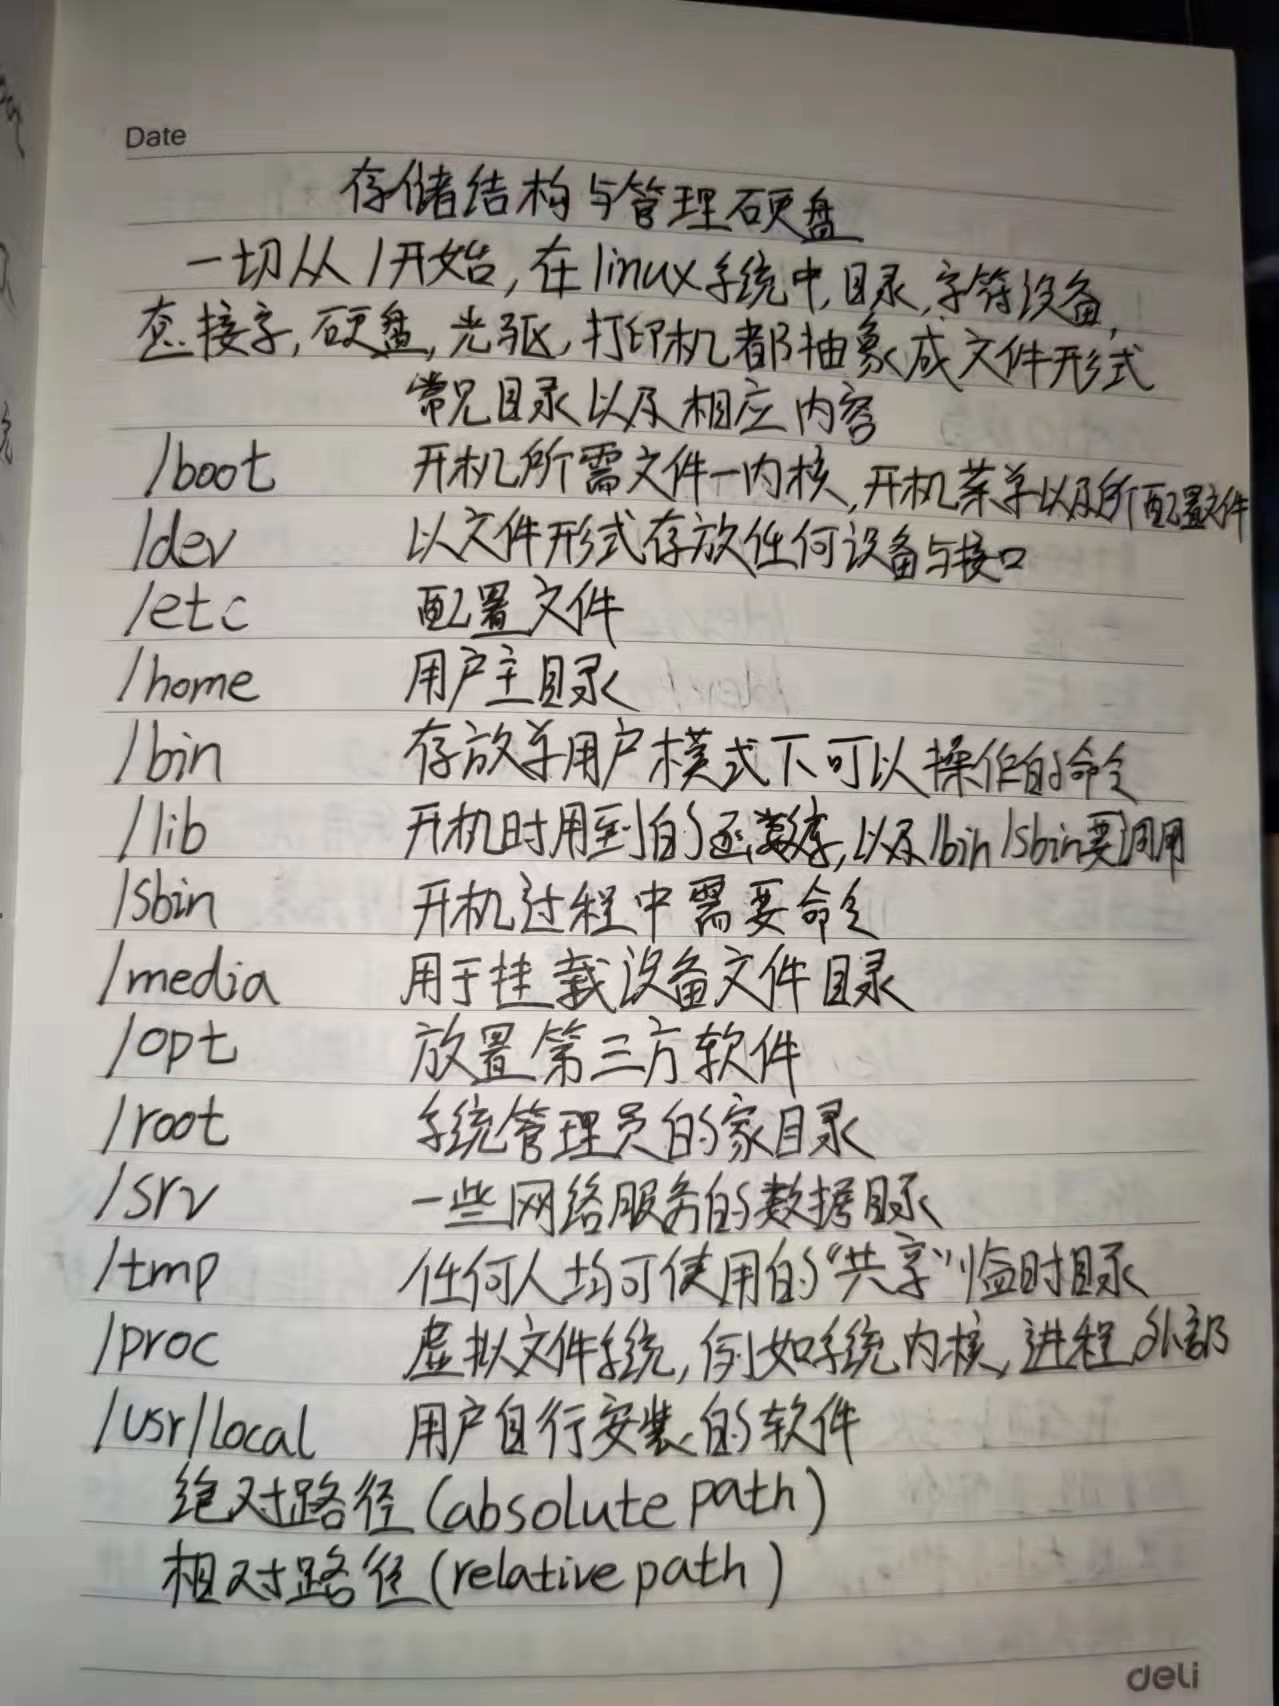 Date
存储结构与管理硬盘
一切从/开始,在linux系统中,目录,字符设备,
套接字,硬盘,光驱,打印机都抽象成文件形式
常见目录以及相应内容
/boot 开机所需文件—内核,开机菜单以及所配置文件
/dev 以文件形式存放任何设备与接口
/etc 配置文件
/home 用户主目录
/bin 存放单用户模式下可以操作的命令
/lib 开机时用到的函数库,以及/bin/sbin要调用
/sbin 开机过程中需要命令
/media 用于挂载设备文件目录
/opt 放置第三方软件
/root 系统管理员的家目录
/srv 一些网络服务的数据目录
/tmp 任何人均可使用的“共享”临时目录
/proc 虚拟文件系统,例如系统内核,进程,外部
/usr/local 用户自行安装的软件
绝对路径(absolute path)
相对路径(relative path)
deli